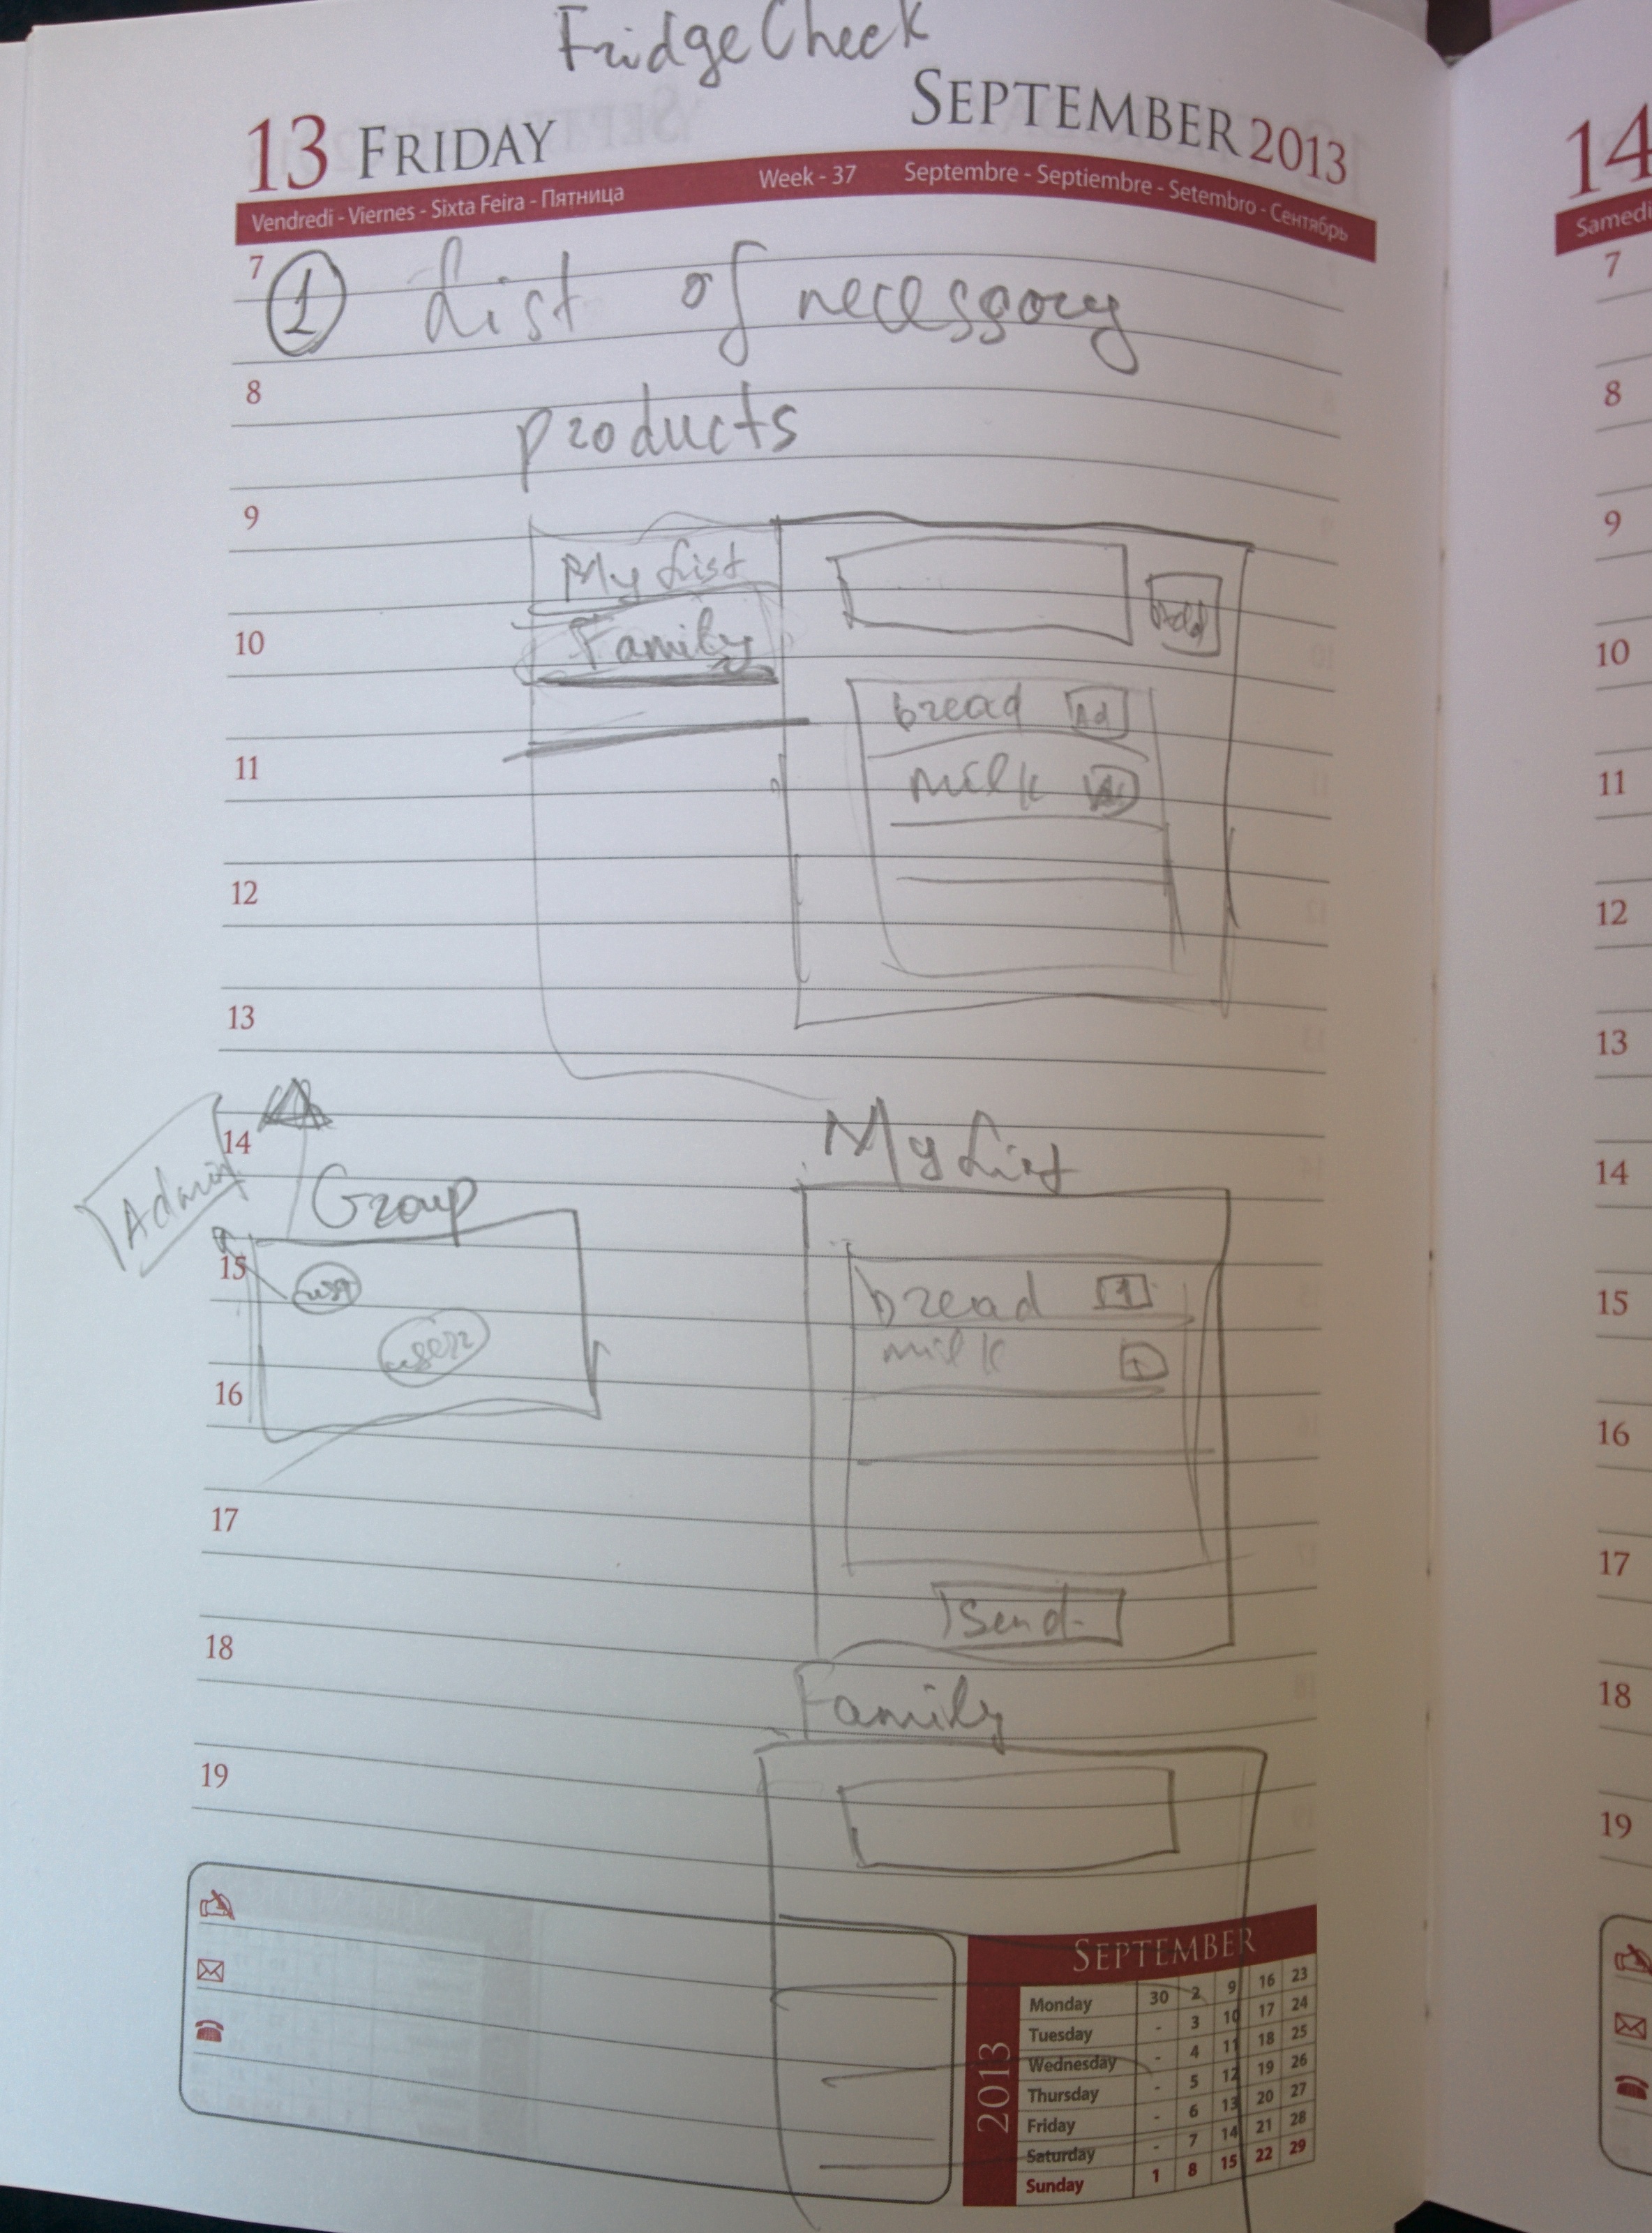 FridgeCheck
13 FRIDAY SEPTEMBER 2013
Vendredi - Viernes - Sixta Feira - Пятница Week - 37 Septembre - Septiembre - Setembro - Сентябрь
7
1 List of necessary
8
products
9
My List
Add
10
Family
bread Ad
11
milk
12
13
14
My List
Admin
Group
15
user
bread 1
user2
milk +
16
17
Send
18
Family
19
SEPTEMBER
2013
Monday 30 2 9 16 23
Tuesday - 3 10 17 24
Wednesday - 4 11 18 25
Thursday - 5 12 19 26
Friday - 6 13 20 27
Saturday - 7 14 21 28
Sunday 1 8 15 22 29
14
Samedi
7
8
9
10
11
12
13
14
15
16
17
18
19